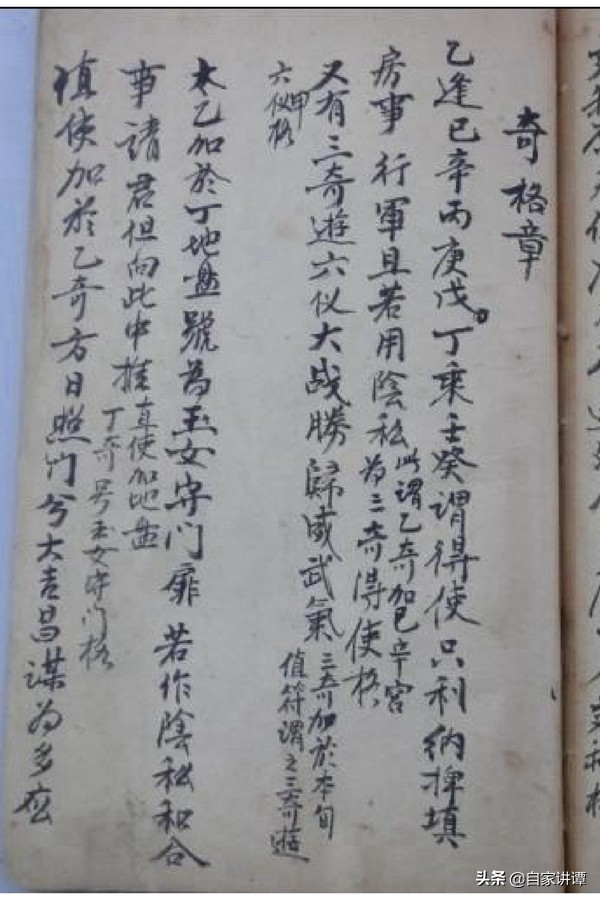 奇格章
乙逢已辛丙庚戊。丁乘壬癸謂得使只利納婢填
房事行軍且若用陰私此謂乙奇加已辛宮
為三奇得使格
又有三奇遊六仪大战勝歸咸武氣三奇加於本旬
值符謂之三奇遊
六甲仪格
太乙加於丁地盘號為玉女守门扉若作陰私和合
事諸君但向此中推直使加地盘
丁奇号玉女守门格
值使加於乙奇方日照门兮大吉昌谋为多应
头条 @自家讲谭